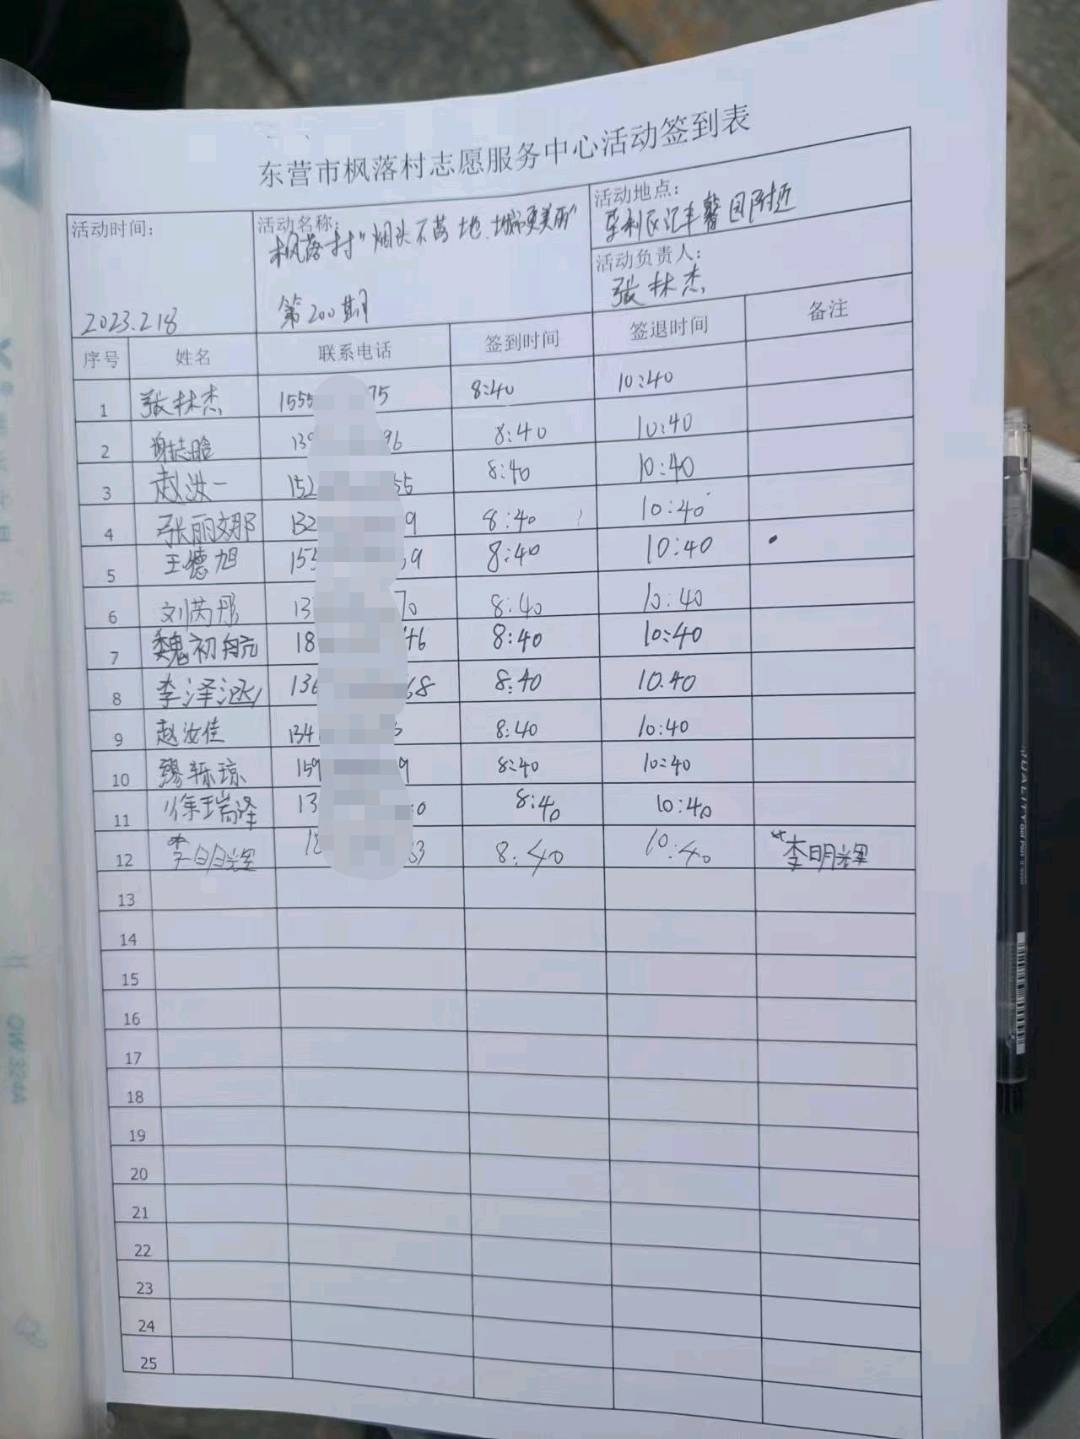 东营市枫落村志愿服务中心活动签到表
活动时间： 2023.2.18
活动名称： 枫落村"烟头不落地、城市更美丽"
第200期
活动地点： 垦利区汇丰馨园附近
活动负责人： 张林杰
序号 姓名 联系电话 签到时间 签退时间 备注
1 张林杰 1555 75 8:40 10:40
2 96 8:40 10:40
3 赵洪一 152 55 8:40 10:40
4 张丽娜 132 9 8:40 10:40
5 王德旭 155 39 8:40 10:40
6 刘芮彤 13 70 8:40 10:40
7 魏初航 18 46 8:40 10:40
8 李泽涵 136 68 8:40 10.40
9 赵汝佳 134 8:40 10:40
10 159 9 8:40 10:40
11 徐瑞泽 13 0 8:40 10:40
12 李明辉 18 63 8:40 10:40 李明辉
13
14
15
16
17
18
19
20
21
22
23
24
25
QUALITY
OW 324A